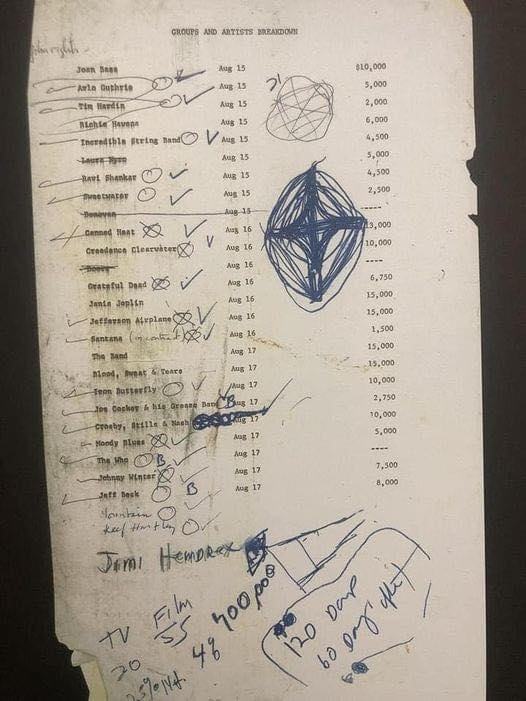 GROUPS AND ARTISTS BREAKDOWN
Joan Baez Aug 15 $10,000
Arlo Guthrie Aug 15 5,000
Tim Hardin Aug 15 2,000
Richie Havens Aug 15 6,000
Incredible String Band Aug 15 4,500
Laura Nyro Aug 15 5,000
Ravi Shankar Aug 15 4,500
Sweetwater Aug 15 2,500
Donovan Aug 15 ----
Canned Heat Aug 16 13,000
Creedence Clearwater Aug 16 10,000
Doors Aug 16 ----
Grateful Dead Aug 16 6,750
Janis Joplin Aug 16 15,000
Jefferson Airplane Aug 16 15,000
Santana (in contract) Aug 16 1,500
The Band Aug 17 15,000
Blood, Sweat & Tears Aug 17 15,000
Iron Butterfly Aug 17 10,000
Joe Cocker & his Grease Band B Aug 17 2,750
Crosby, Stills & Nash Aug 17 10,000
Moody Blues Aug 17 5,000
The Who B Aug 17 ----
Johnny Winter Aug 17 7,500
Jeff Beck B Aug 17 8,000
Mountain
Keef Hartley
Jimi Hendrex
TV Film 400,000
20 55 46
120 Days
60 Days